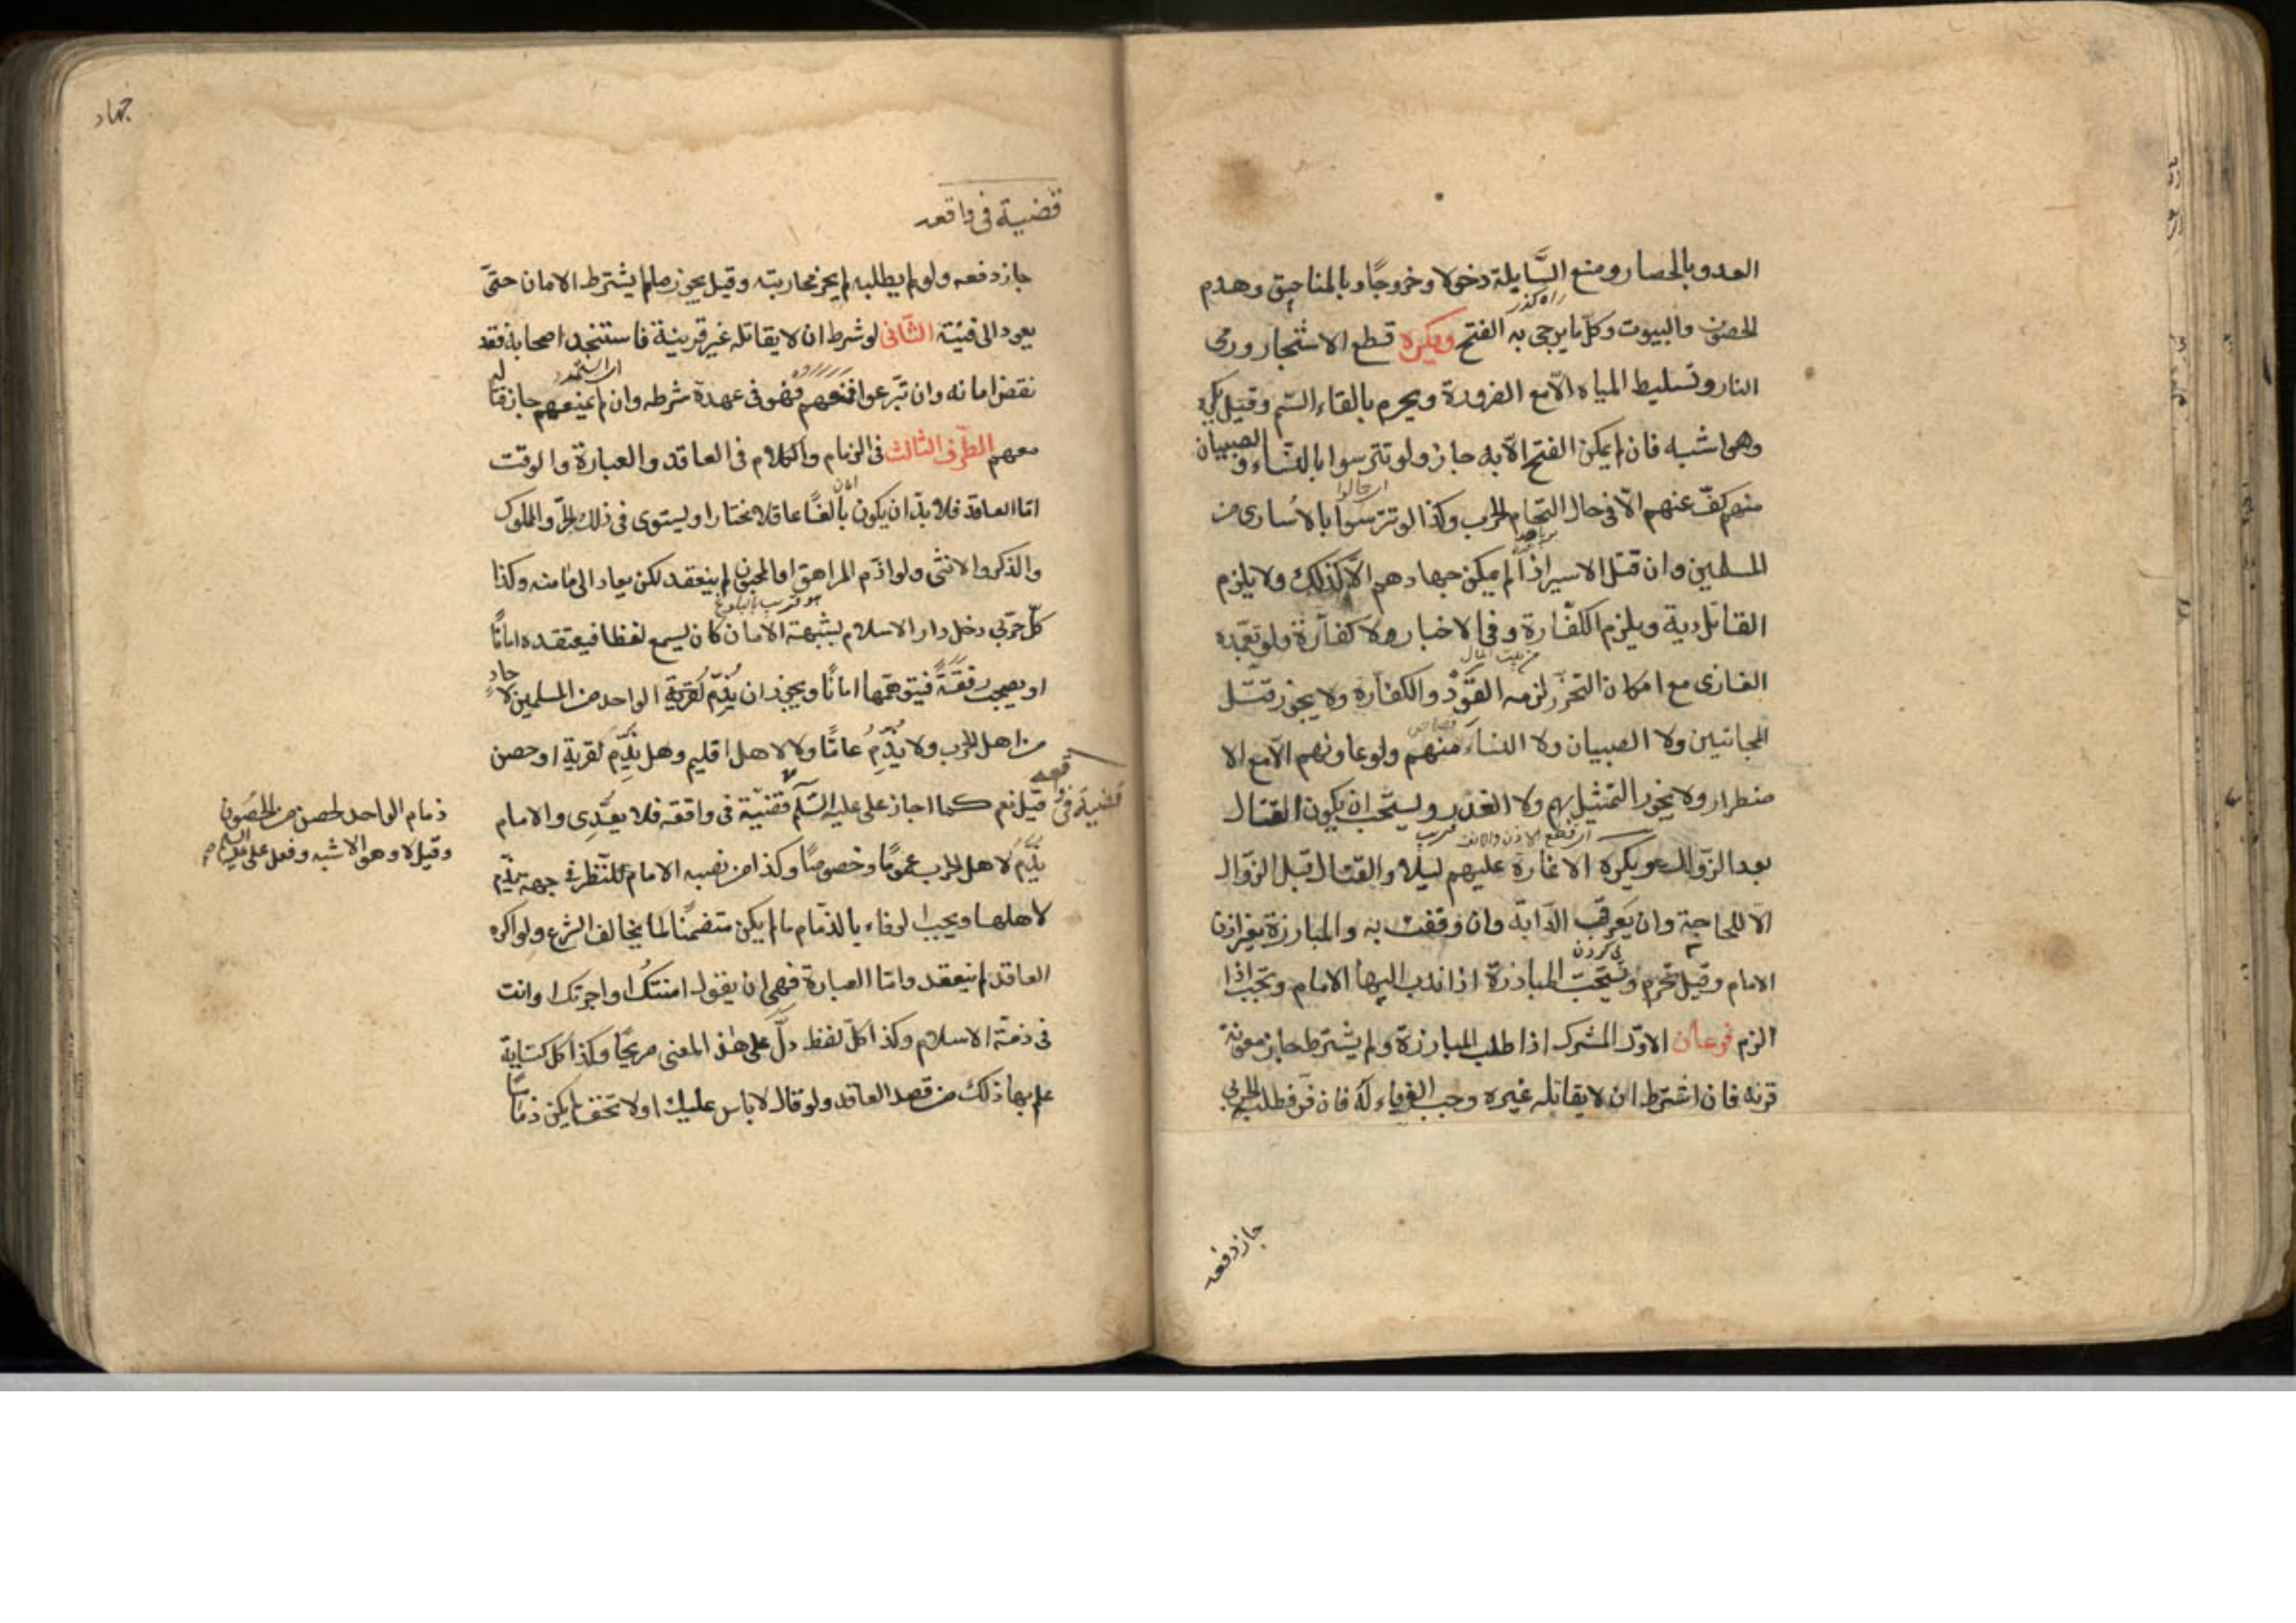 العدو بالحصار ومنع السَّابلة دخولا وخروجًا وبالمناجيق وهدم
راه گذر
الحصون والبيوت وكلّ ما يرجى به الفتح ويكره قطع الاشجار ورمى
النار وتسليط المياه الّا مع الضرورة ويحرم بالقاء السّم وقيل يكره
وهو اشبه فان لم يمكن الفتح الّا به جاز ولو تترسوا بالنساء و الصبيان
منهم كفّ عنهم الّا فى حال التحام الحرب وكذا لو تترسوا بالاُسارى من
المسلمين وان قتل الاسير اذا لم يمكن جهادهم الّا كذلك ولا يلزم
القاتل دية ويلزم الكفّارة وفى الاخبار ولا كفّارة ولو تعمّده
من بيت المال
الغازى مع امكان التحرّز لزمه القَوَدُ والكفّارة ولا يجوز قتل
قصاص
المجانين ولا الصبيان ولا النساء منهم ولو عاونهم الّا مع الا
ضطرار ولا يجوز التمثيل بهم ولا الغدر ويستحب ان يكون القتال
اى قطع الاذن والانف
بعد الزّوال ويكره الاغارة عليهم ليلا والقتال قبل الزّوال
الّا لحاجة وان يعرقب الدّابّة وان وقفت به والمبارزة بغير اذن
پى كردن
الامام وقيل تحرم وتستحبّ المبارزة اذا ندب اليها الامام وتجب اذا
الزم فرعان الاوّل المشرك اذا طلب المبارزة ولم يشترط جاز معونة
قرنه فان اشترط ان لا يقاتله غيره وجب الوفاء له فان فرّ فطلبه الحربى
جاز دفعه
جهاد
قضية فى واقعه
جاز دفعه ولو لم يطلبه لم يجز محاربته وقيل يجوز ما لم يشترط الامان حتّى
يعود الى فئته الثّانى لو شرط ان لا يقاتله غير قرينه فاستنجد اصحابه فقد
نقض امانه وان تبرّعوا فمنعهم فهو فى عهدة شرطه وان لم يمنعهم جاز قتاله
معهم الطّرف الثالث فى الذمام والكلام فى العاقد والعبارة والوقت
امان
امّا العاقد فلا بدّ ان يكون بالغًا عاقلا مختارا ويستوى فى ذلك الحرّ والمملوك
والذكر والانثى ولو اذمّ المراهق او المجنون لم ينعقد لكن يعاد الى مامنه وكذا
هو قريب بالبلوغ
كلّ حربّى دخل دار الاسلام بشبهة الامان كان يسمع لفظا فيعتقده امانًا
او يصحب رفقةً فيتوهّمها امانًا ويجوز ان يُذِمّ الواحد من المسلمين لاحاد
من اهل الحرب ولا يُذِمّ عامًّا ولا لاهل اقليم وهل يُذِمّ لقرية او حصن
قيل نعم كما اجاز على عليه السّلم قضيّة فى واقعة فلا يتعدّى والامام
قضية فى واقعه
ذمام الواحد لحصن من الحصون
وقيل لا وهو الاشبه وفعل على عليه السلم
يُذِمّ لاهل الحرب عمومًا وخصوصًا وكذا من نصبه الامام للنّظر فى جهة يذمّ
لاهلها ويجب الوفاء بالذّمام ما لم يكن متضمّنا لما يخالف الشرع ولو اكره
العاقد لم ينعقد وامّا العبارة فهى ان يقول امنتكَ او اجرتك او انت
فى ذمّة الاسلام وكذا كلّ لفظ دلّ على هذا المعنى صريحًا وكذا كل كناية
علم بها ذلك من قصد العاقد ولو قال لا باس عليك او لا تخف لم يكن ذمامًا